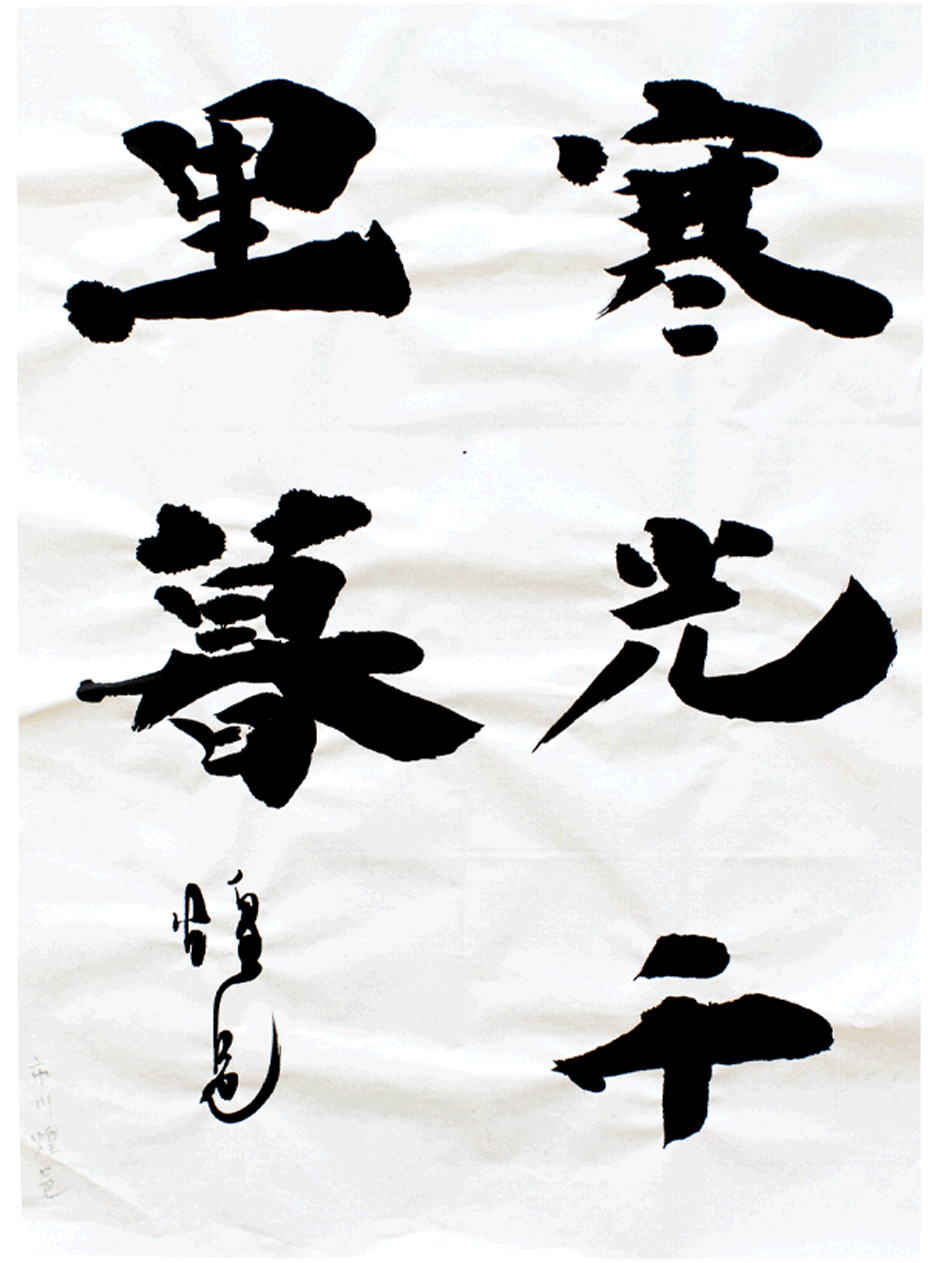 寒光千
里暮
煌邑
市川煌邑